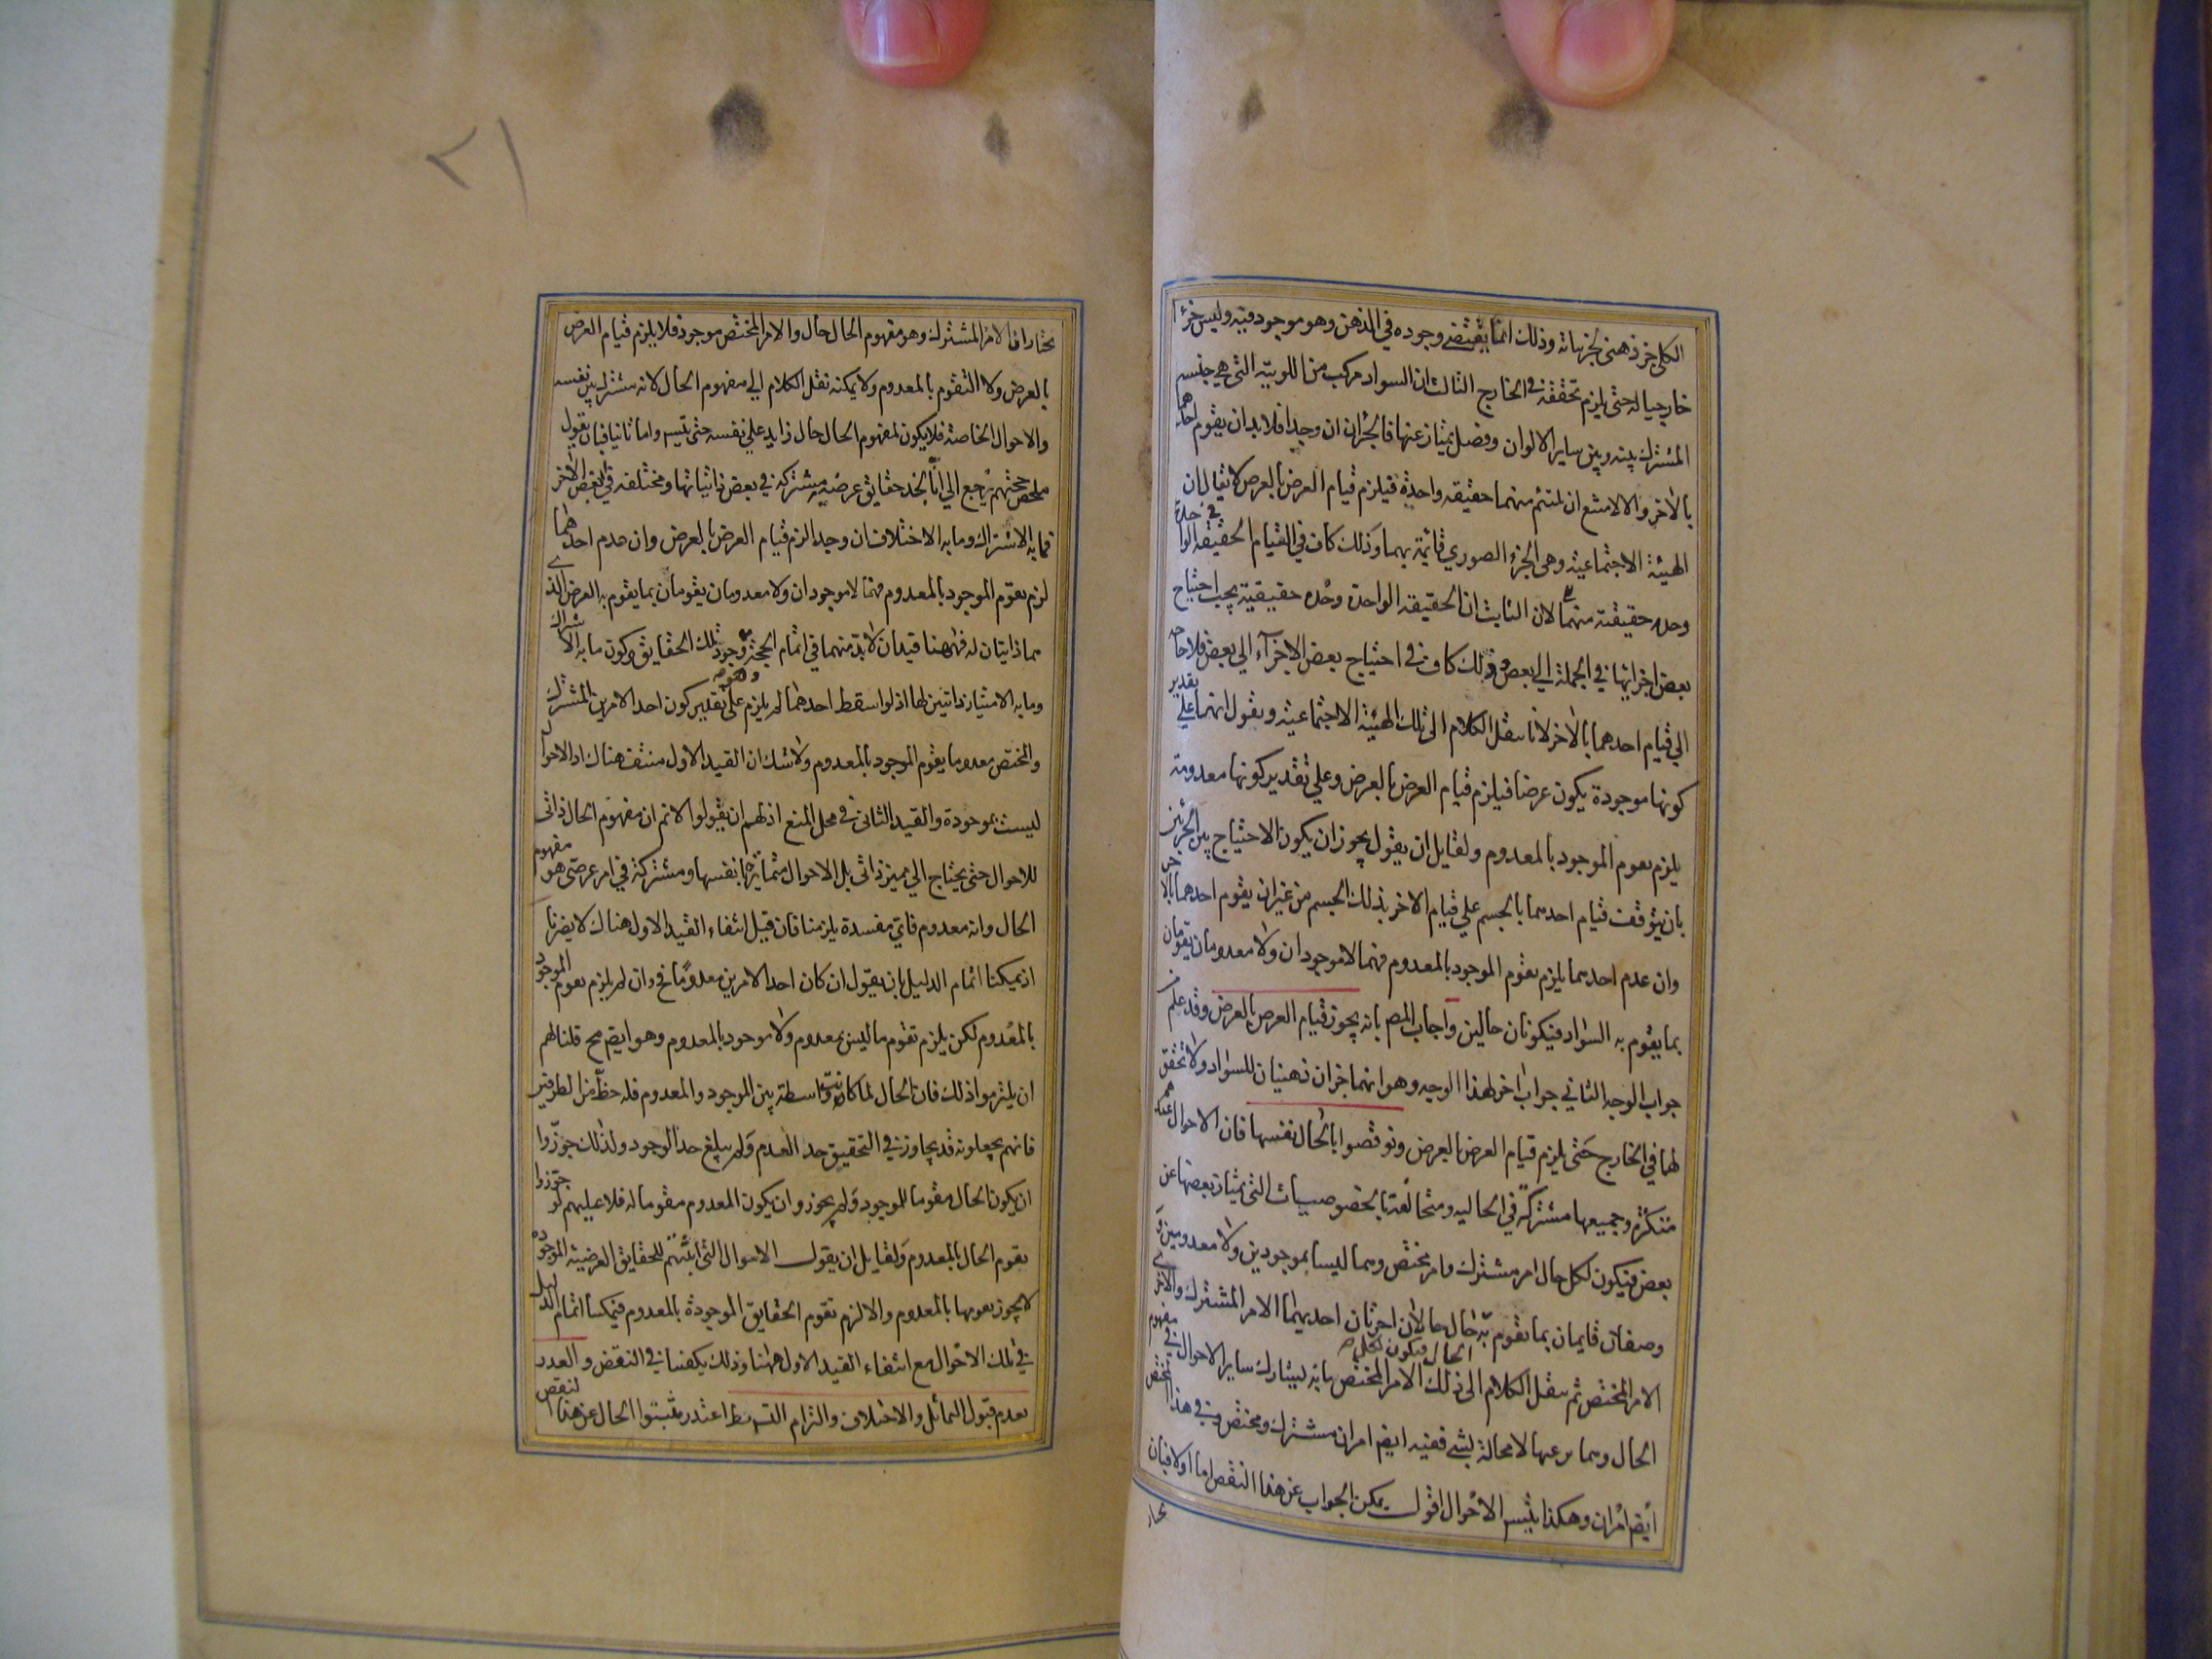 الكلى جزء ذهنى لجزئياته وذلك انما يقتضى وجوده في الذهن وهو موجود فيه وليس جزءا
خارجيا له حتى يلزم تحققه في الخارج الثالث ان السواد مركب من اللونية التى هي جنسه
المشترك بينه وبين ساير الالوان وفصل يمتاز عنها فالجزءان ان وجدا فلا بد ان يقوم احدهما
بالاخر والا لامتنع ان يلتئم منهما حقيقه واحدة فيلزم قيام العرض بالعرض لا يقال ان
الهيئة الاجتماعية وهى الجزء الصوري قائمة بهما وذلك كاف في القيام الحقيقة الواحدة
وحده حقيقته منهما لان الثابت ان الحقيقه الواحدة وحده حقيقية يجب احتياج
بعض اجزائها في الجملة الي بعض وذلك كاف في احتياج بعض الاجزآء الي بعض فلا حاجه
الي قيام احدهما بالاخر لانا ننقل الكلام الى تلك الهيئة الاجتماعية ونقول انهما علي تقدير
كونها موجودة يكون عرضا فيلزم قيام العرض بالعرض وعلي تقدير كونها معدومة
يلزم تقوم الموجود بالمعدوم ولقايل ان يقول يجوز ان يكون الاحتياج بين الجزئين
بان يتوقف قيام احدهما بالجسم علي قيام الاخر بذلك الجسم من غير ان يقوم احدهما بالاخر
وان عدم احدهما يلزم تقوم الموجود بالمعدوم فهما لا موجودان ولا معدومان يقومان
بما يقوم به السواد فيكونان حالين واجاب المص بانه يجوز قيام العرض بالعرض وقد علم من
جواب الوجه الثاني جواب اخر لهذا الوجه وهو انهما جزان ذهنيان للسواد ولا تحقق
لها في الخارج حتى يلزم قيام العرض بالعرض ونوقضوا بالحال نفسها فان الاحوال عندهم
متكثرة وجميعها مشتركة في الحاليه ومتخالفة بالخصوصيات التى يمتاز بعضها عن
بعض فيكون لكل حال امر مشترك وامر مختص وهما ليسا بموجودين ولا معدومين و
وصفان قايمان بما تقوم به حال حالان اخريان احديهما الامر المشترك والاخرى
الحال فيكون للحال ص
الامر المختص ثم ننقل الكلام الى ذلك الامر المختص بانه ليشارك ساير الاحوال في مفهوم
الحال ويمايز عنها لا محالة بشئ ففيه ايضا امران مشترك ومختص وفي هذا المختص
ايضا امران وهكذا يتسلسل الاحوال اقول يمكن الجواب عن هذا النقض اما اولا فبان
نختار
٢١
نختار ان الامر المشترك وهو مفهوم الحال حال والامر المختص موجود فلا يلزم قيام العرض
بالعرض ولا التقوم بالمعدوم ولا يمكنه نقل الكلام الي مفهوم الحال لانه مشترك بين نفسه
والاحوال الخاصة فلا يكون لمفهوم الحال حال زايد علي نفسه حتى يتسلسل واما ثانيا فبان يقول
ملخص حجتهم يرجع الي انا نجد حقايق عرضيه مشتركة في بعض ذاتياتها ومختلفه في البعض الاخر
فما به الاشتراك وما به الاختلاف ان وجدا لزم قيام العرض بالعرض وان عدم احدهما
لزم تقوم الموجود بالمعدوم فهما لا موجودان ولا معدومان يقومان بما يقوم به العرض الذي
هما ذاتيتان له فههنا قيدان لا بد منهما في اتمام الحجة وجود تلك الحقايق وكون ما به الاشتراك
وما به الامتياز ذاتيين لها اذ لو اسقط احدهما لم يلزم علي تقدير كون احد الامرين المشترك
والمختص معدوما تقوم الموجود بالمعدوم ولا شك ان القيد الاول منتف هناك اذ الاحوال
ليست بموجودة والقيد الثاني في محل المنع اذ لهم ان يقولوا لا نم ان مفهوم الحال ذاتى
للاحوال حتى يحتاج الي مميز ذاتى بل الاحوال متمايزة بانفسها ومشتركة في امر عرضى هو مفهوم
الحال وانه معدوم فاي مفسدة يلزمنا فان قيل انتفاء القيد الاول هناك لا يضرنا
اذ يمكننا اتمام الدليل بان يقول ان كان احد الامرين معدوما فح وان لم يلزم تقوم الموجود
بالمعدوم لكن يلزم تقوم ما ليس بمعدوم ولا موجود بالمعدوم وهو ايضا مح قلنا لهم
ان يلتزموا ذلك فان الحال لما كانت واسطة بين الموجود والمعدوم فله حظ من الطرفين
فانهم يجعلونه قد يجاوز في التحقيق حد العدم ولم يبلغ حد الوجود ولذلك جوزوا
ان يكون الحال مقوما للموجود ولم يجوزوا ان يكون المعدوم مقوما له فلا عليهم لو جوزوا
تقوم الحال بالمعدوم ولقايل ان يقول الاحوال التى اثبتم للحقايق العرضية الموجوده
لا يجوز تقومها بالمعدوم والا لزم تقوم الحقايق الموجودة بالمعدوم فيمكننا اتمام الدليل
في تلك الاحوال مع انتفاء القيد الاول ههنا وذلك يكفينا في النقض والعذر
بعدم قبول التماثل والاختلاف والتزام التسلسل باطل اعتذر مثبتوا الحال عن هذا النقض